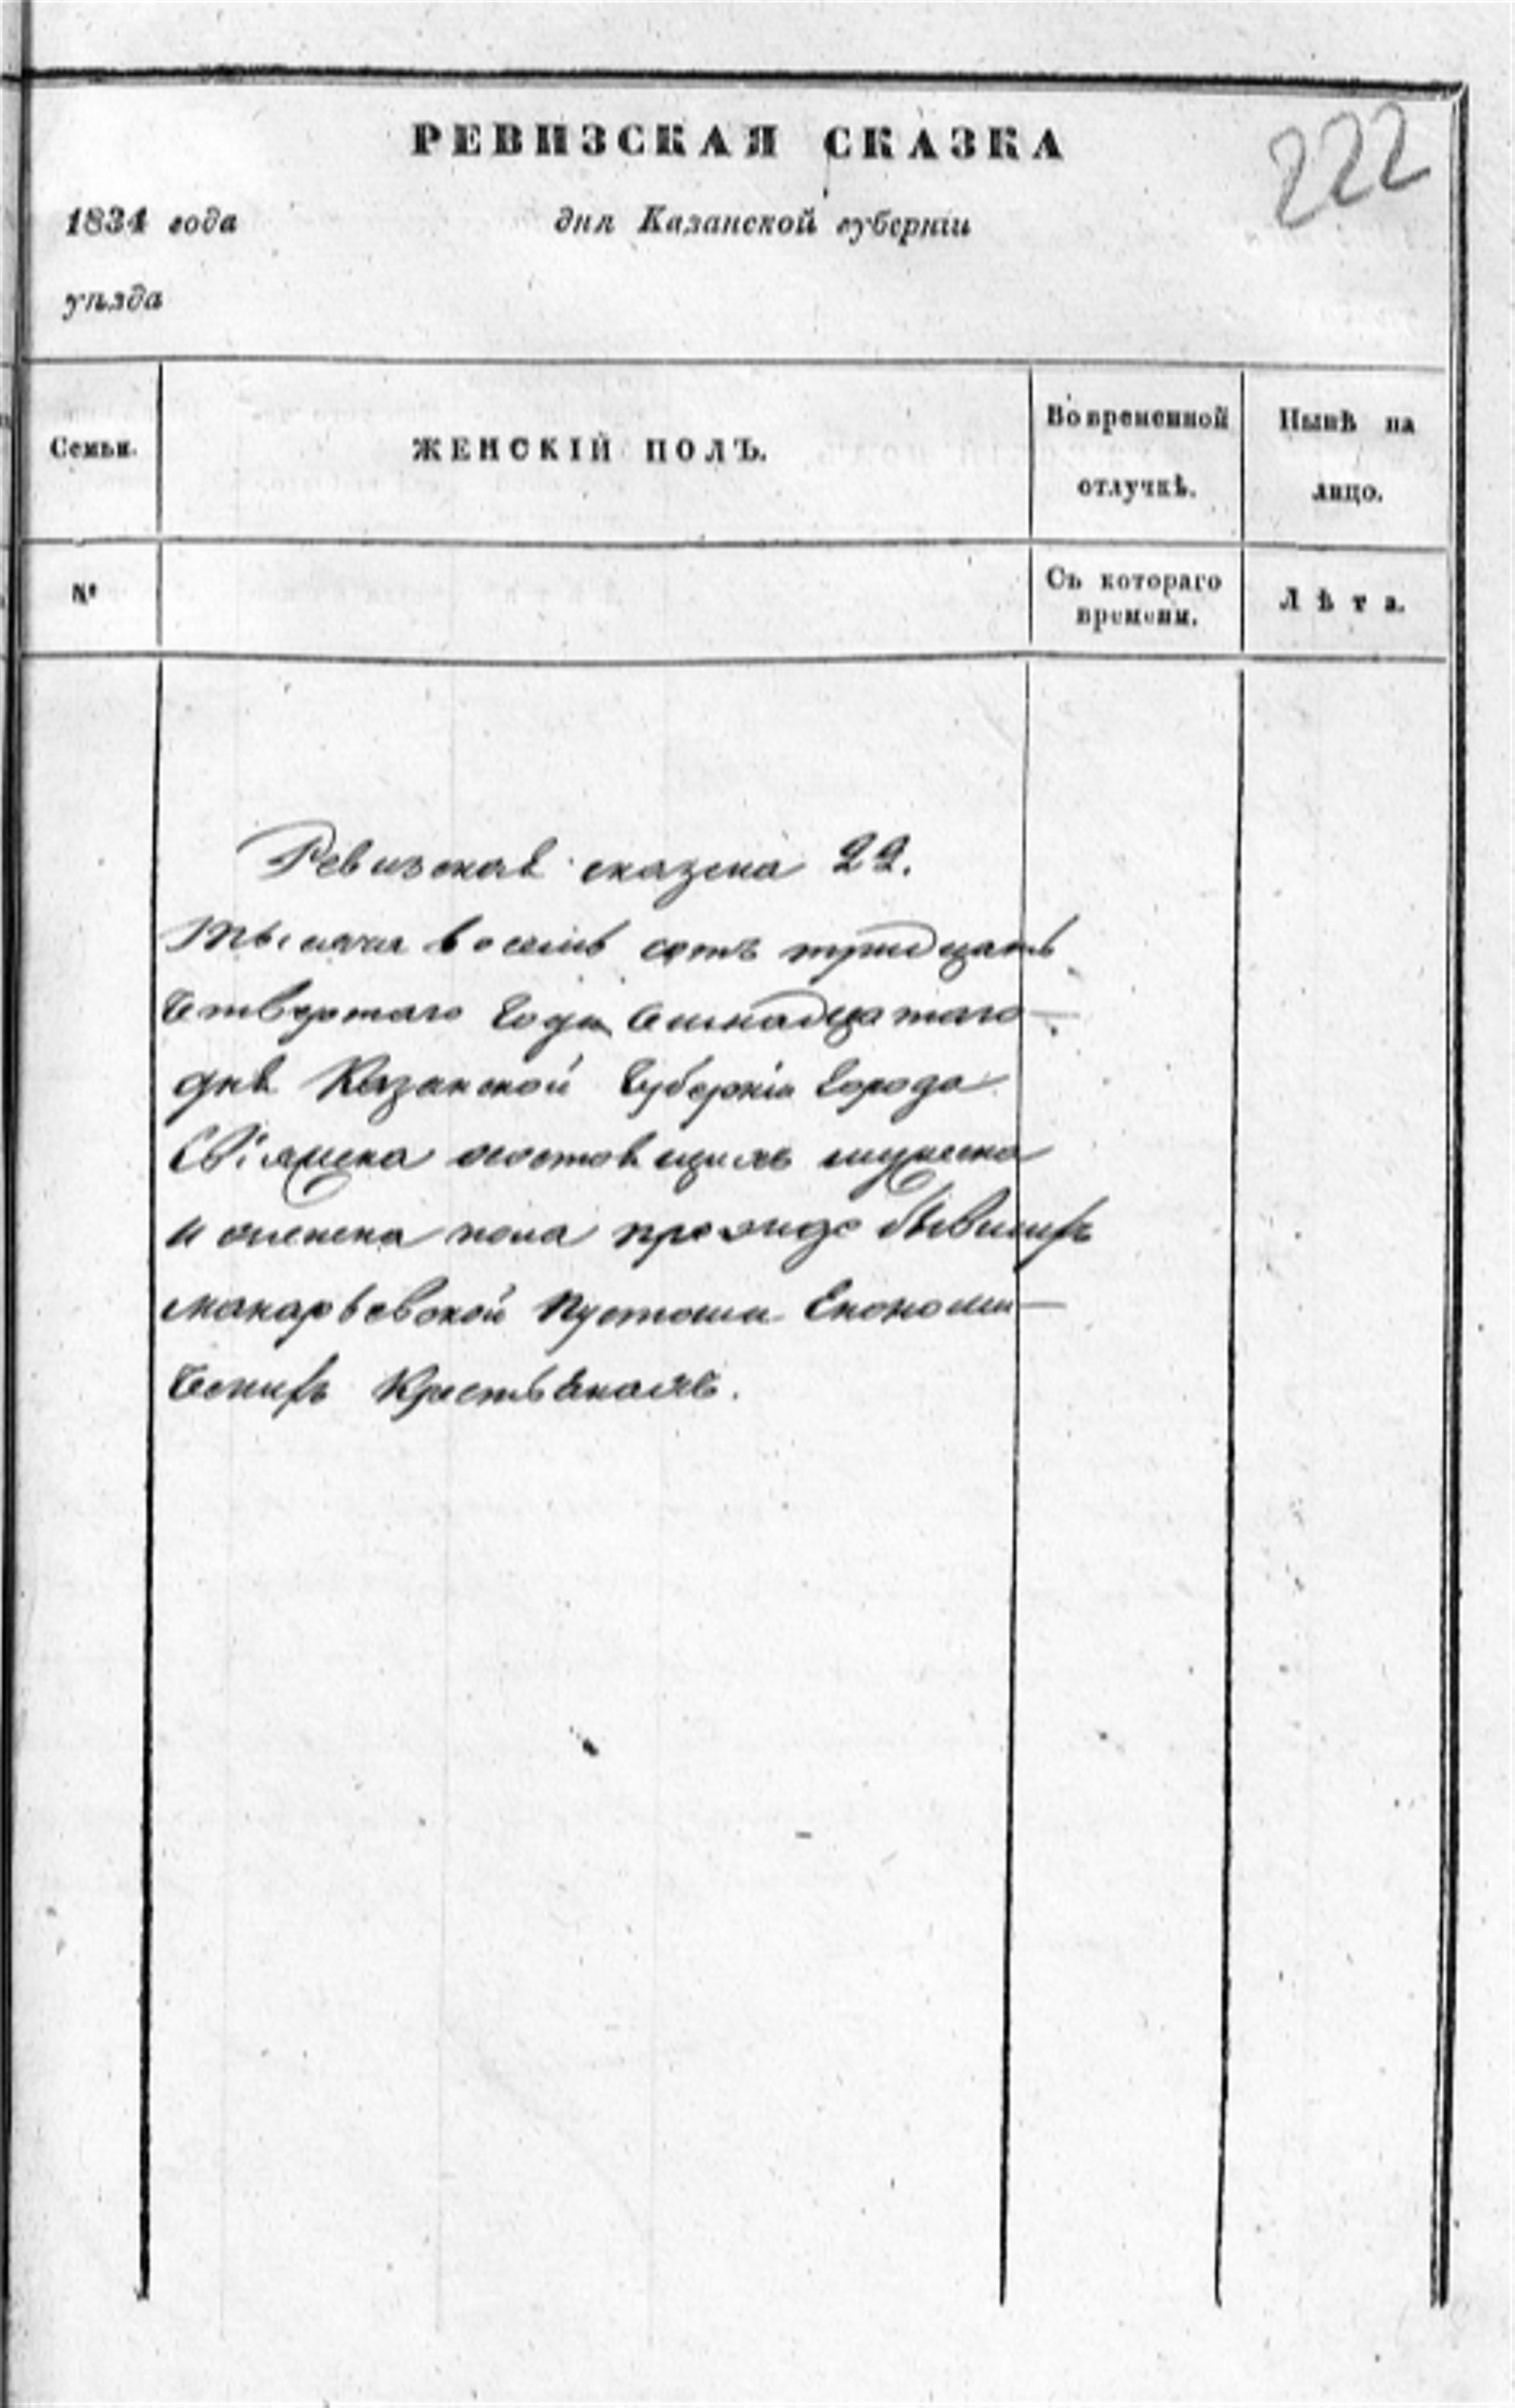 РЕВИЗСКАЯ СКАЗКА
222
1834 года дня Казанской губерніи
уѣзда
Семьи.
ЖЕНСКІЙ ПОЛЪ.
Во временной отлучкѣ.
Нынѣ на лицо.
№
Съ котораго времени.
Лѣта.
Ревизская сказка 22.
Тысяча восемь сотъ тридцать
Четвертаго Года
дня Казанской Губерніи Города
Свіяжска состоящимъ мужеска
и женска пола прежде бывшихъ
макарьевской Пустоши Економи-
Ческихъ Крестьянамъ.